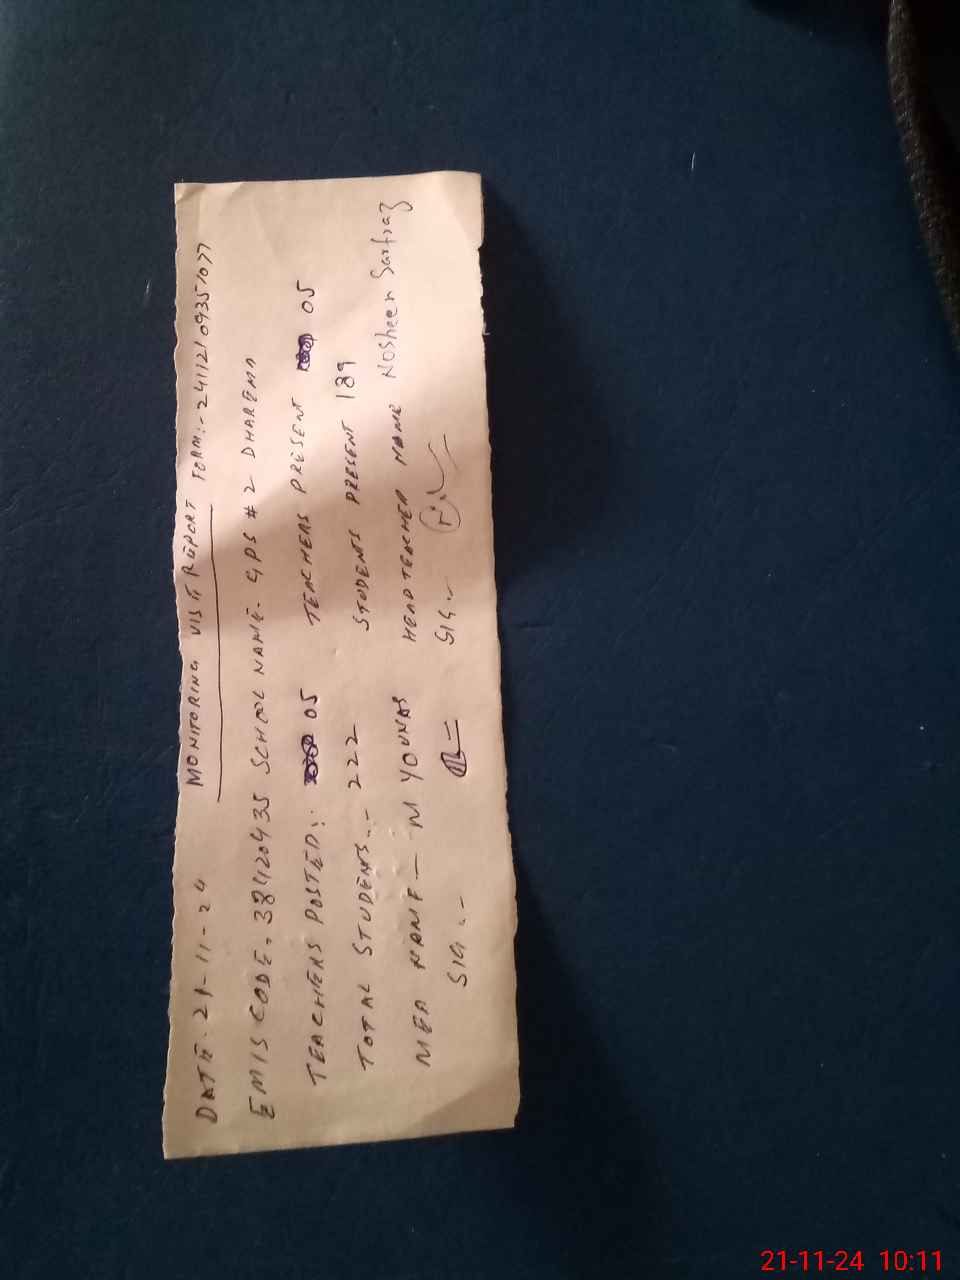 DATE. 21-11-24 MONITORING VISIT REPORT FORM:- 241121093571077
EMIS CODE. 38420435 SCHOOL NAME. GPS # 2 DHAREMA
TEACHERS POSTED:. 05 TEACHERS PRESENT 05
TOTAL STUDENTS.- 222 STUDENTS PRESENT 189
MEA NAME— M YOUNAS HEADTEACHER NAME Nosheen Sarfraz
SIG.- SIG.-
21-11-24 10:11